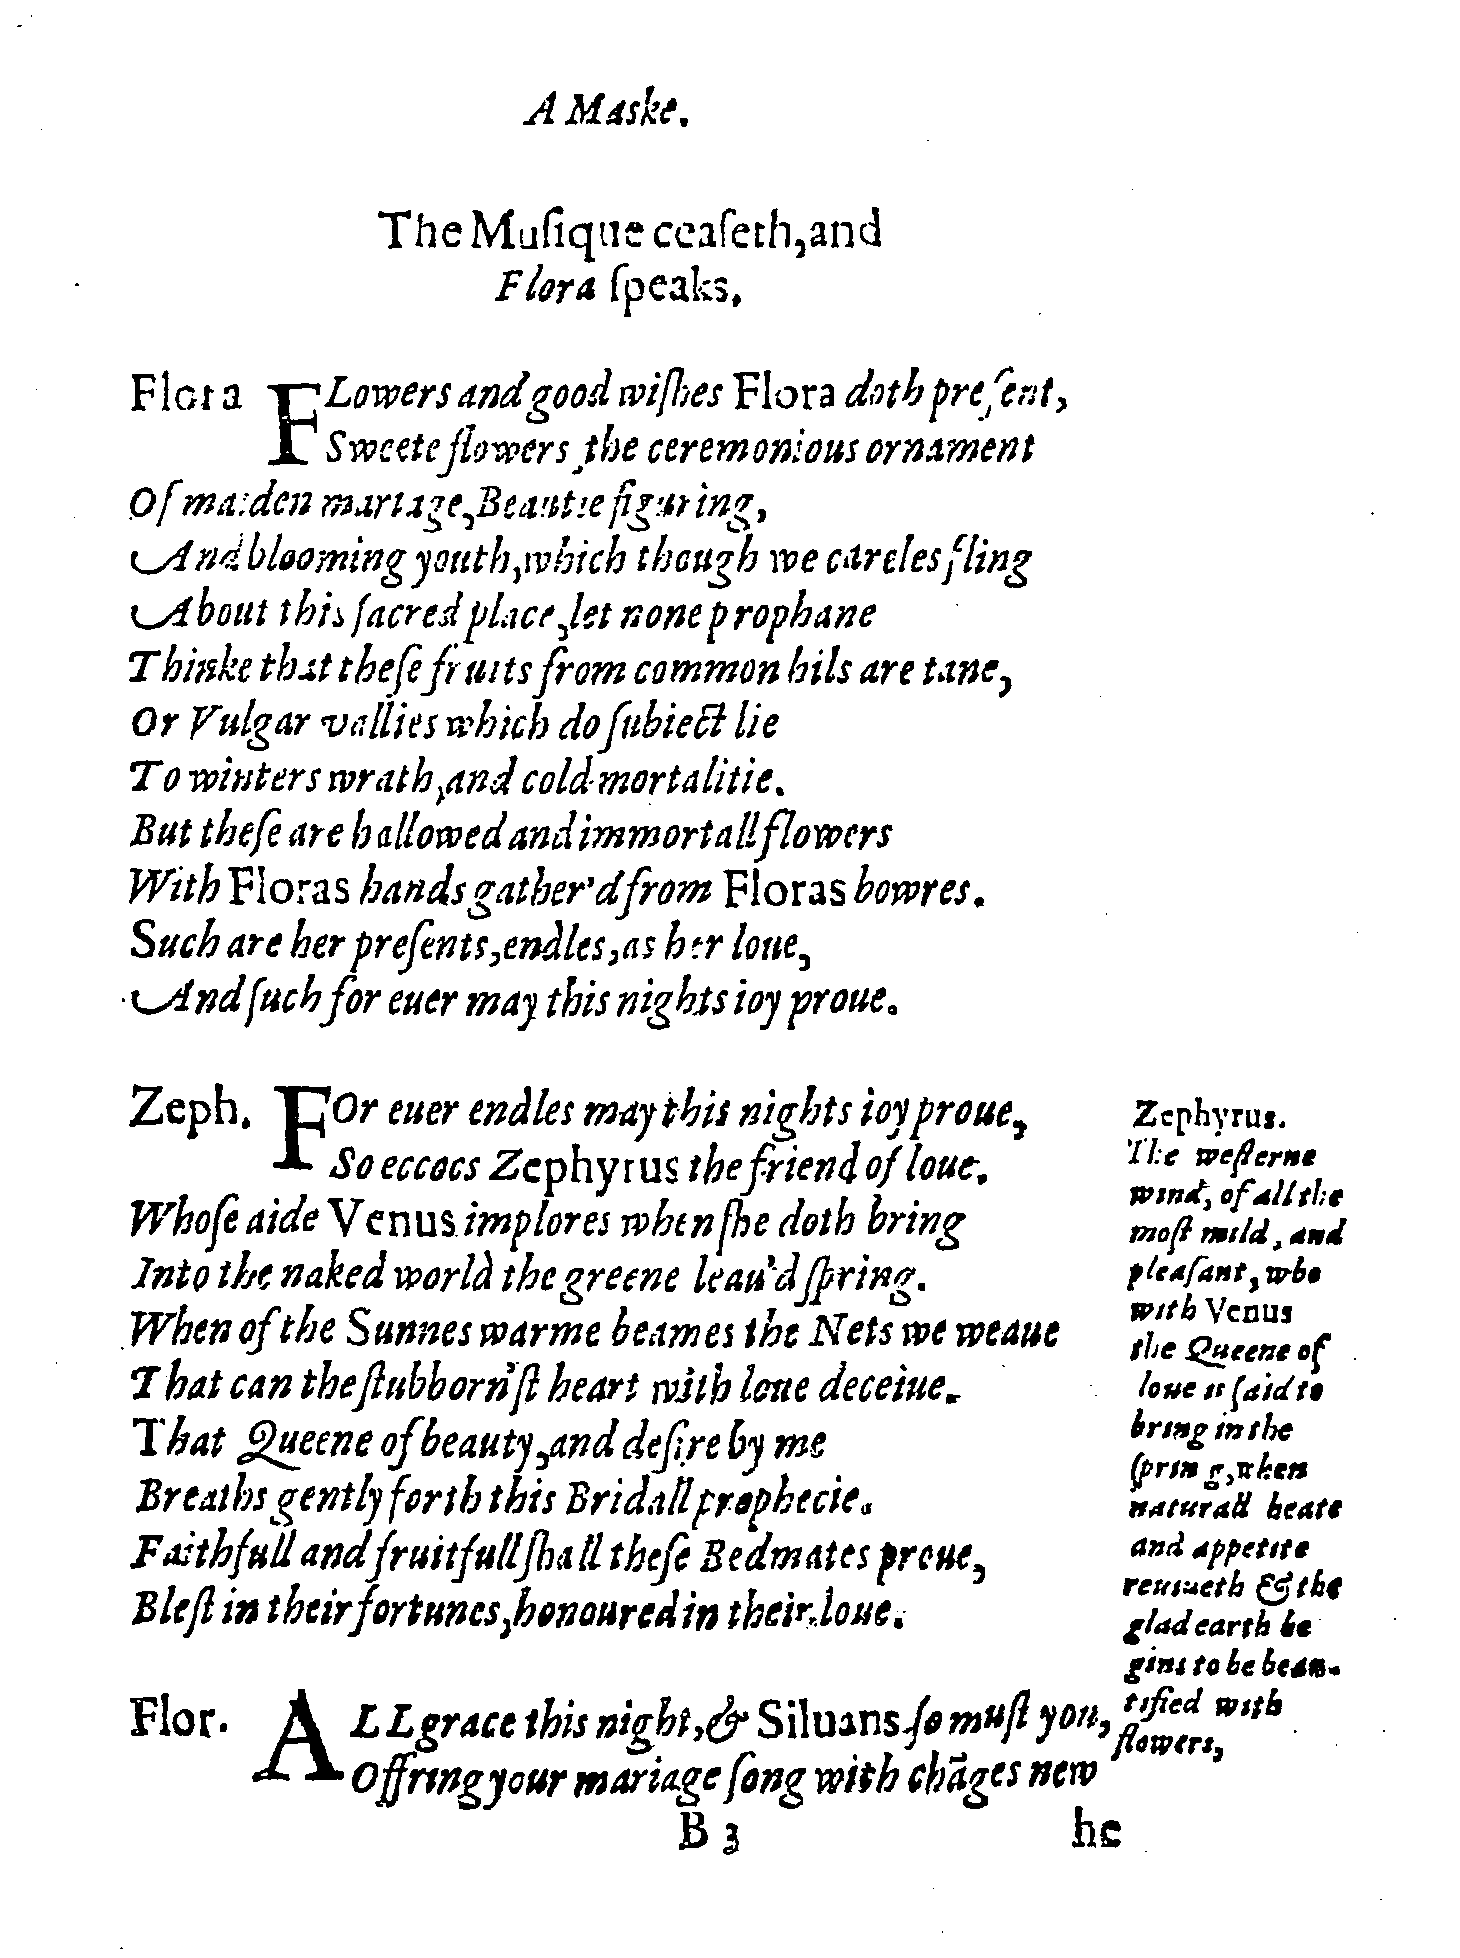 A Maske.
The Muſique ceaſeth, and
Flora ſpeaks.
Flora FLowers and good wiſhes Flora doth preſent,
Sweete flowers, the ceremonious ornament
Of maiden mariage, Beautie figuring,
And blooming youth, which though we careles fling
About this ſacred place, let none prophane
Thinke that theſe fruits from common hils are tane,
Or Vulgar vallies which do ſubiect lie
To winters wrath, and cold mortalitie.
But theſe are hallowed and immortall flowers
With Floras hands gather'd from Floras bowres.
Such are her preſents, endles, as her loue,
And ſuch for euer may this nights ioy proue.
Zeph. FOr euer endles may this nights ioy proue,
So eccoes Zephyrus the friend of loue.
Whoſe aide Venus implores when ſhe doth bring
Into the naked world the greene leau'd ſpring.
When of the Sunnes warme beames the Nets we weaue
That can the ſtubborn'ſt heart with loue deceiue.
That Queene of beauty, and deſire by me
Breaths gently forth this Bridall prophecie.
Faithfull and fruitfull ſhall theſe Bedmates proue,
Bleſt in their fortunes, honoured in their loue.
Zephyrus.
The weſterne
wind, of all the
moſt mild, and
pleaſant, who
with Venus
the Queene of
loue is ſaid to
bring in the
ſpring, when
naturall heate
and appetite
reuiueth & the
glad earth be
gins to be beau-
tified with
flowers,
Flor. ALL grace this night, & Siluans ſo muſt you,
Offring your mariage ſong with chāges new
B 3 he